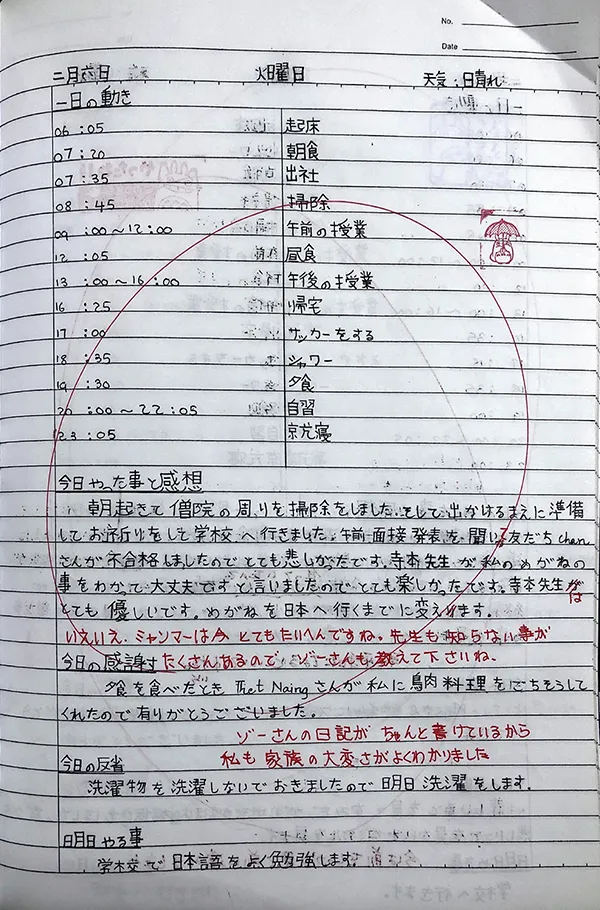 No.
Date
二月六日 火曜日 天気:日晴れ
一日の動き
06:05 起床
07:20 朝食
07:35 出社
08:45 掃除
09:00~12:00 午前の授業
12:05 昼食
13:00~16:00 午後の授業
16:25 帰宅
17:00 サッカーをする
18:35 シャワー
19:30 夕食
20:00~22:05 自習
23:05 就寝
今日やった事と感想
朝起きて僧院の周りを掃除をしました。そして出かけるまえに準備
してお祈りをして学校へ行きました。午前面接発表を聞いる友だちchan
さんが不合格しましたのでとても悲しかったです。寺本先生が私のめがねの
事をわかって大丈夫ですと言いましたのでとても楽しかったです。寺本先生がは
とても優しいです。めがねを日本へ行くまでに変えります。
いえいえ、ミャンマーは今とてもたいへんですね。先生も知らない事が
今日の感謝 たくさんあるので、ゾーさんも教えて下さいね。
夕食を食べたとき Htet Naingさんが私に鳥肉料理をごちそうして
くれたので有りがとうございました。
ゾーさんの日記がちゃんと書けているから
今日の反省 私も家族の大変さがよくわかりました
洗濯物を洗濯しないでおきましたので明日洗濯をします。
明日やる事
学校で日本語をよく勉強します。